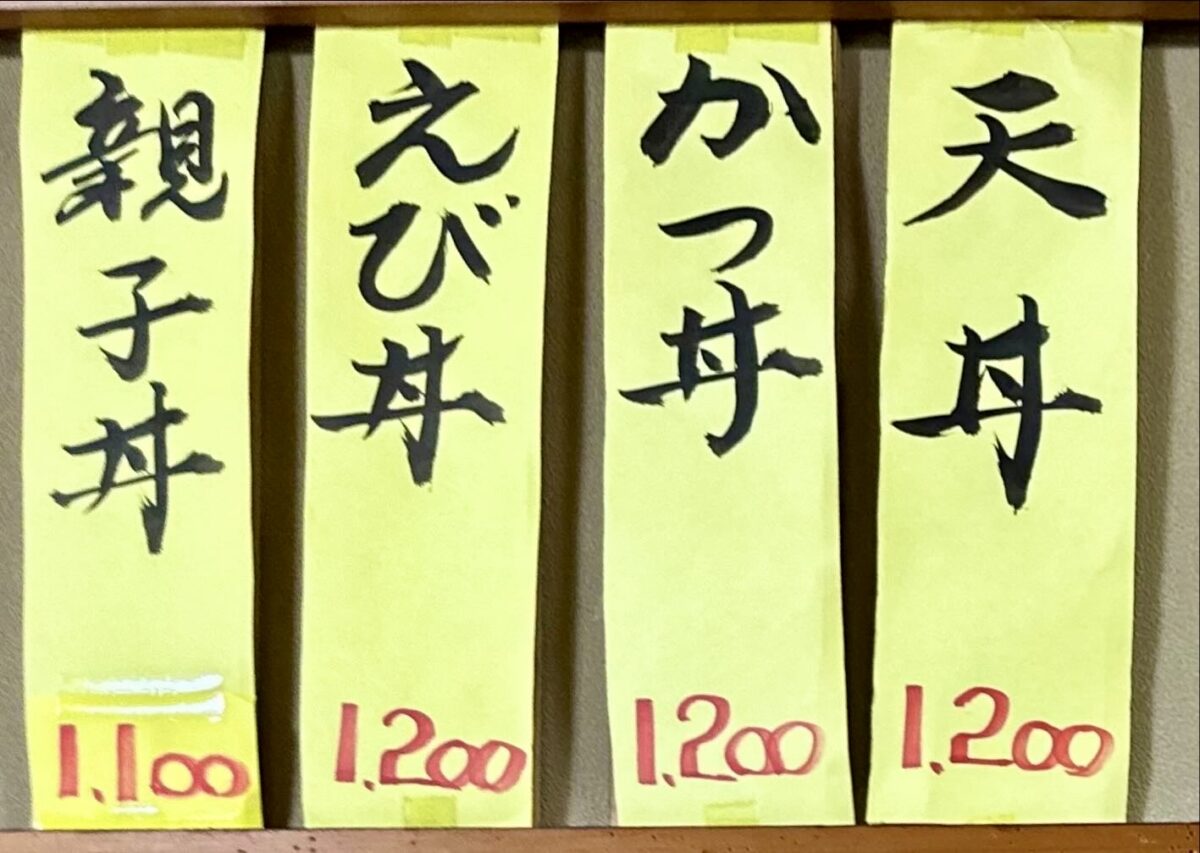 天丼
1,200
かつ丼
1,200
えび丼
1,200
親子丼
1,100